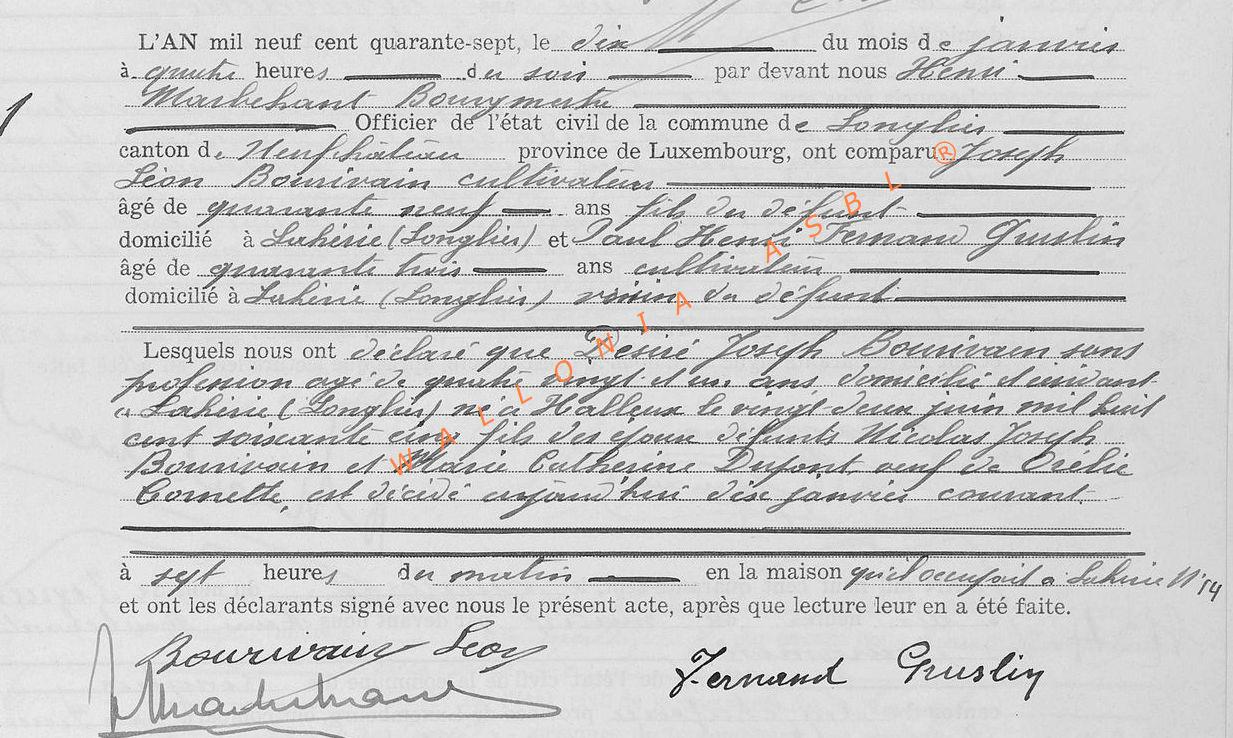 L'AN mil neuf cent quarante-sept, le dix du mois de janvier
à quatre heures du soir par devant nous Henri
Marbehant Bourgmestre
Officier de l'état civil de la commune de Longlier
canton de Neufchâteau province de Luxembourg, ont comparu Joseph
Léon Bourivain cultivateur
âgé de quarante neuf ans fils du défunt
domicilié à Laherie (Longlier) et Paul Henri Fernand Gruslin
âgé de quarante trois ans cultivateur
domicilié à Laherie (Longlier) voisin du défunt
Lesquels nous ont déclaré que Désiré Joseph Bourivain sans
profession agé de quatre vingt et un ans, domicilié et résidant
à Laherie (Longlier) né à Halleux le vingt deux juin mil huit
cent soixante cinq fils des époux défunts Nicolas Joseph
Bourivain et Marie Catherine Dupont, veuf de Orélie
Cornette, est décédé aujourd'hui dix janvier courant
à sept heures du matin en la maison qu'il occupait à Laherie N° 14
et ont les déclarants signé avec nous le présent acte, après que lecture leur en a été faite.
Bourivain Leon
Fernand Gruslin
WALLONIA ASBL ®